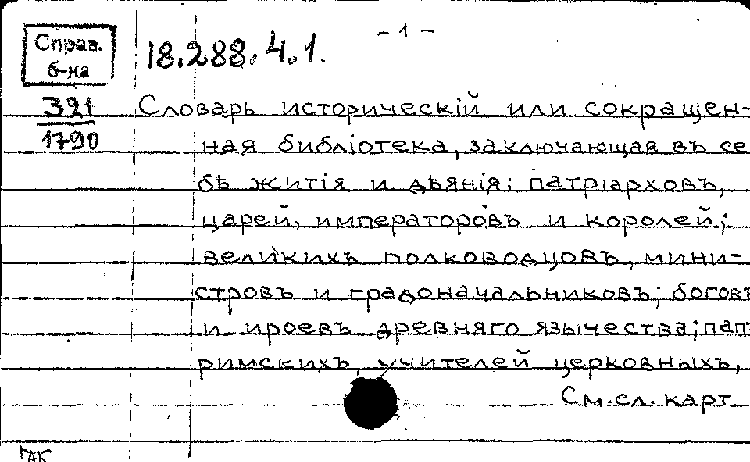 - 1 -
Справ.
б-ка
18.288.4.1.
321
1790
Словарь историческiй или сокращен-
ная библiотека, заключающая въ се
бѣ житiя и дѣянiя: патрiарховъ,
царей, императоровъ и королей;
великихъ полководцовъ, мини-
стровъ и градоначальниковъ; боговъ
и ироевъ древняго язычества; пап
римскихъ, учителей церковныхъ,
См. сл. карт
ГАК